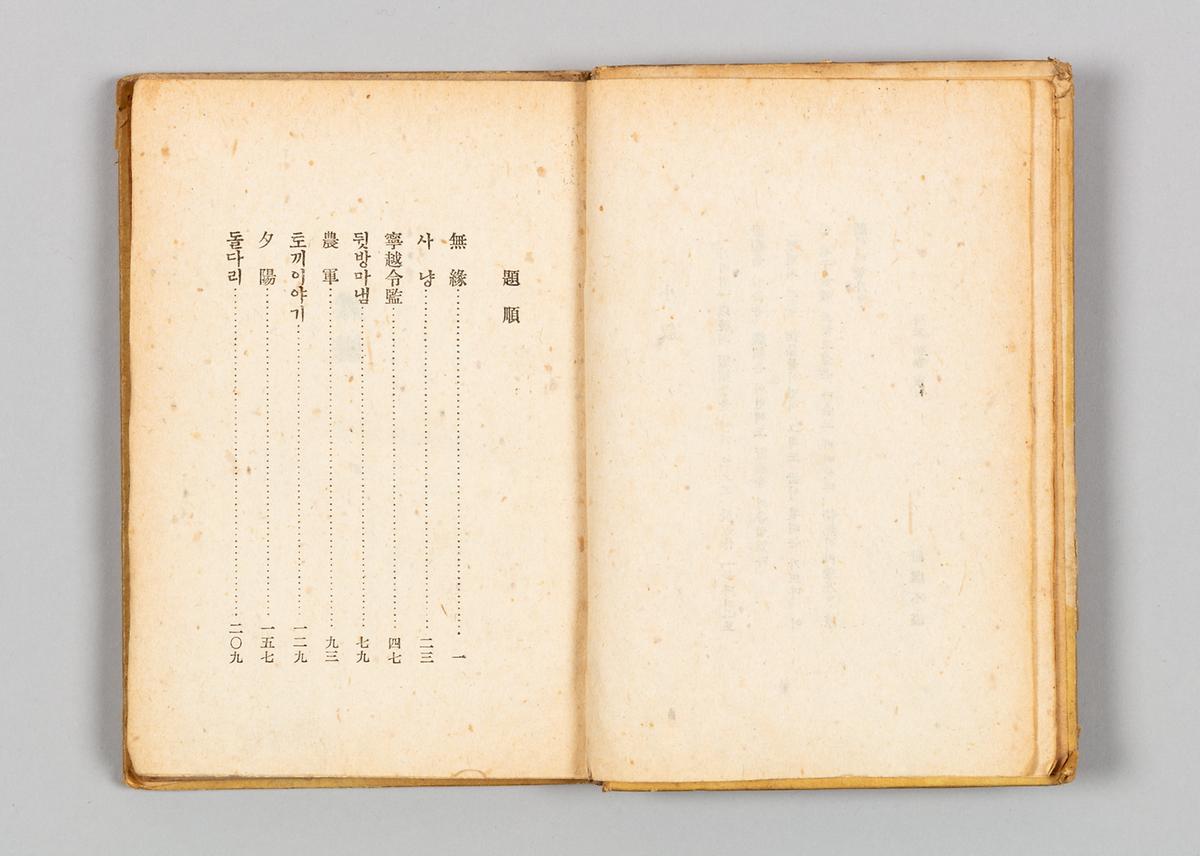 題順
無緣……一
사냥……二三
寧越令監……四七
뒷방마냄……七九
農軍……九三
토끼이야기……一二九
夕陽……一五七
돌다리……二〇九